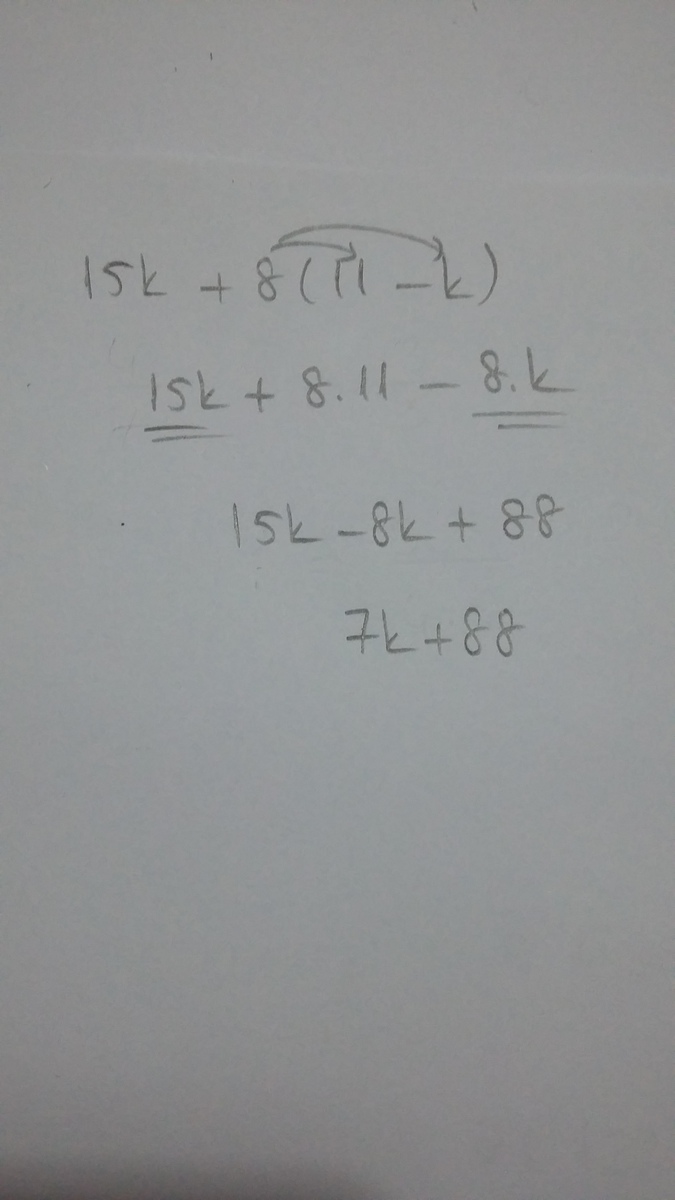 15k + 8(11 - k)
15k + 8.11 - 8.k
15k - 8k + 88
7k + 88